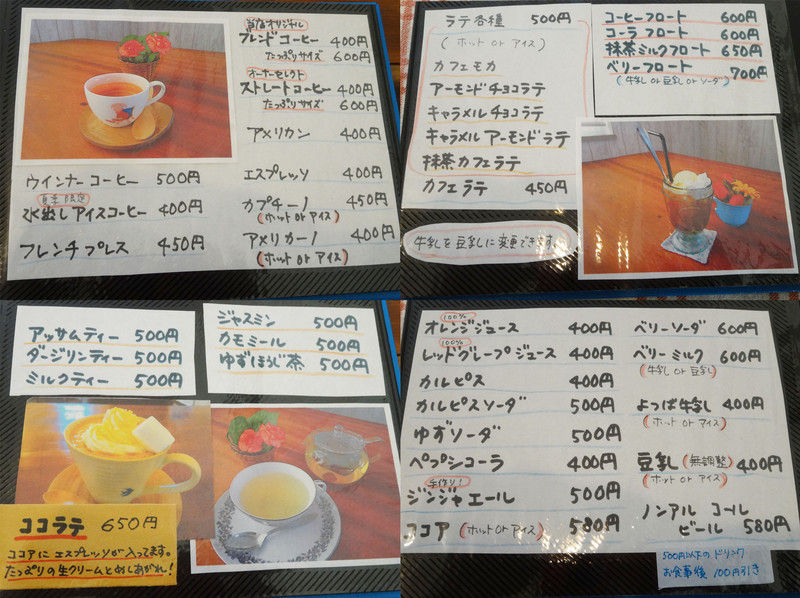 当店オリジナル
ブレンドコーヒー 400円
たっぷりサイズ 600円
オーナーセレクト
ストレートコーヒー 400円
たっぷりサイズ 600円
アメリカン 400円
エスプレッソ 400円
カプチーノ 450円
(ホット or アイス)
アメリカーノ 400円
(ホット or アイス)
ウインナーコーヒー 500円
夏季限定
水出しアイスコーヒー 400円
フレンチプレス 450円
ラテ各種 500円
(ホット or アイス)
カフェモカ
アーモンドチョコラテ
キャラメルチョコラテ
キャラメルアーモンドラテ
抹茶カフェラテ
カフェラテ 450円
牛乳を豆乳に変更できます。
コーヒーフロート 600円
コーラフロート 600円
抹茶ミルクフロート 650円
ベリーフロート 700円
(牛乳 or 豆乳 or ソーダ)
アッサムティー 500円
ダージリンティー 500円
ミルクティー 500円
ジャスミン 500円
カモミール 500円
ゆずほうじ茶 500円
ココラテ 650円
ココアにエスプレッソが入ってます。
たっぷりの生クリームとめしあがれ!
100%
オレンジジュース 400円
100%
レッドグレープジュース 400円
カルピス 400円
カルピスソーダ 500円
ゆずソーダ 500円
ペプシコーラ 400円
手作り!
ジンジャエール 500円
ココア (ホット or アイス) 580円
ベリーソーダ 600円
ベリーミルク 600円
(牛乳 or 豆乳)
よつば牛乳 400円
(ホット or アイス)
豆乳 (無調整) 400円
(ホット or アイス)
ノンアルコール
ビール 580円
500円以下のドリンク
お食事後 100円引き